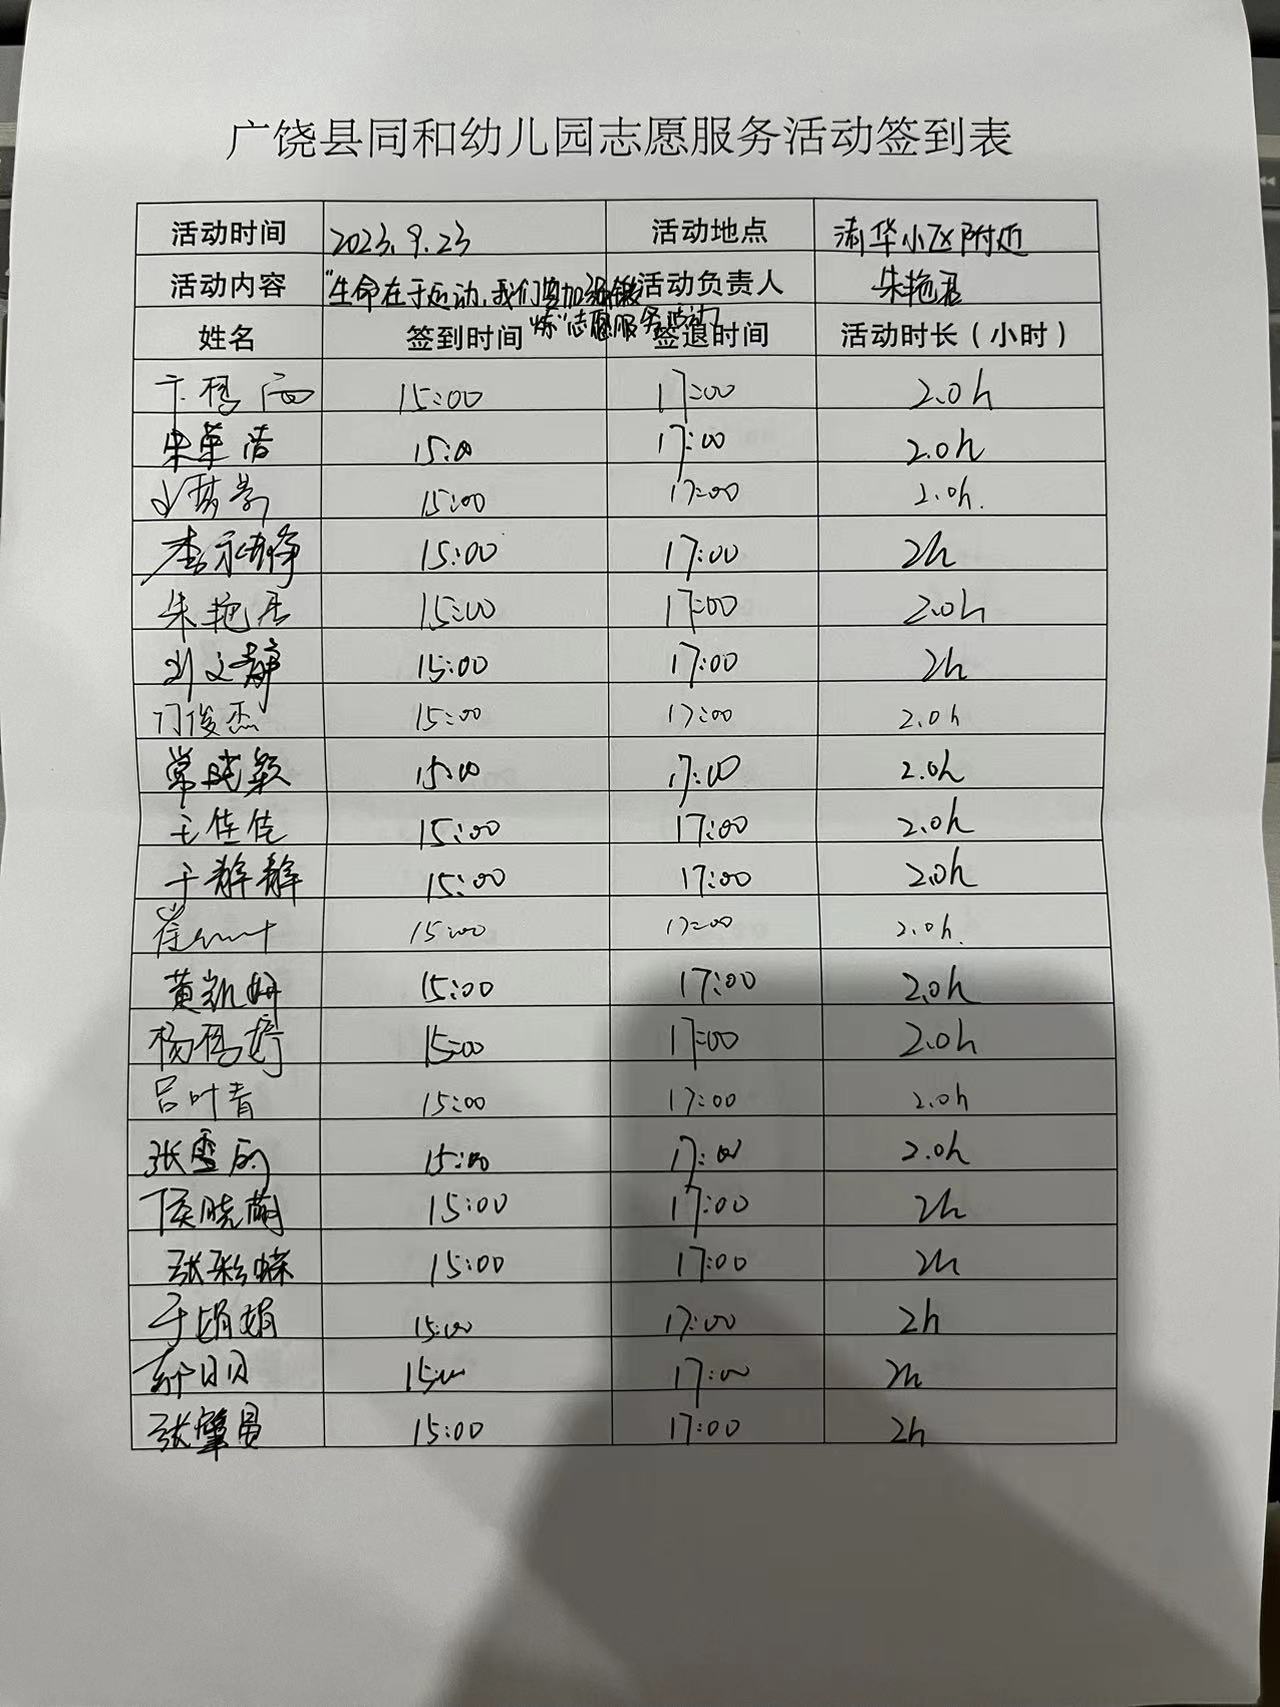 广饶县同和幼儿园志愿服务活动签到表
活动时间 2023.9.23 活动地点 清华小区附近
活动内容 "生命在于运动,我们要加强锻 活动负责人 朱艳君
炼"志愿服务活动
姓名 签到时间 签退时间 活动时长(小时)
15:00 17:00 2.0h
朱荣洁 15:00 17:00 2.0h
15:00 17:00 2.0h.
李永峥 15:00 17:00 2h
朱艳君 15:00 17:00 2.0h
刘文静 15:00 17:00 2h
门俊杰 15:00 17:00 2.0h
常晓颖 15:00 17:00 2.0h
王佳佳 15:00 17:00 2.0h
于静静 15:00 17:00 2.0h
崔 15:00 17:00 2.0h.
黄凯娟 15:00 17:00 2.0h
杨杨婷 15:00 17:00 2.0h
吕叶青 15:00 17:00 2.0h
张雪 15:00 17:00 2.0h
侯晓萌 15:00 17:00 2h
张彩蝶 15:00 17:00 2h
于娟娟 15:00 17:00 2h
15:00 17:00 2h
张肇曼 15:00 17:00 2h